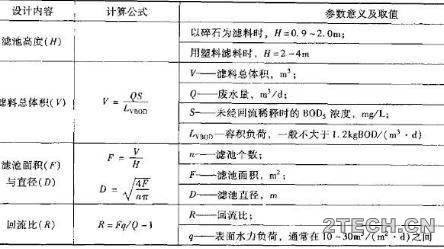 设计内容 计算公式 参数意义及取值
滤池高度(H) 以碎石为滤料时，H=0.9~2.0m；
用塑料滤料时，H=2~4m
滤料总体积(V) V=QS/L_VBOD V——滤料总体积，m³；
Q——废水量，m³/d；
S——未经回流稀释时的BOD₅浓度，mg/L；
L_VBOD——容积负荷，一般不大于1.2kgBOD/(m³·d)
滤池面积(F) F=V/H n——滤池个数；
与直径(D) D=√(4F/nπ) F——滤池面积，m²；
D——滤池直径，m
回流比(R) R=Fq/Q-1 R——回流比；
q——表面水力负荷，通常在10~30m³/(m²·d)之间
2TECH.CN